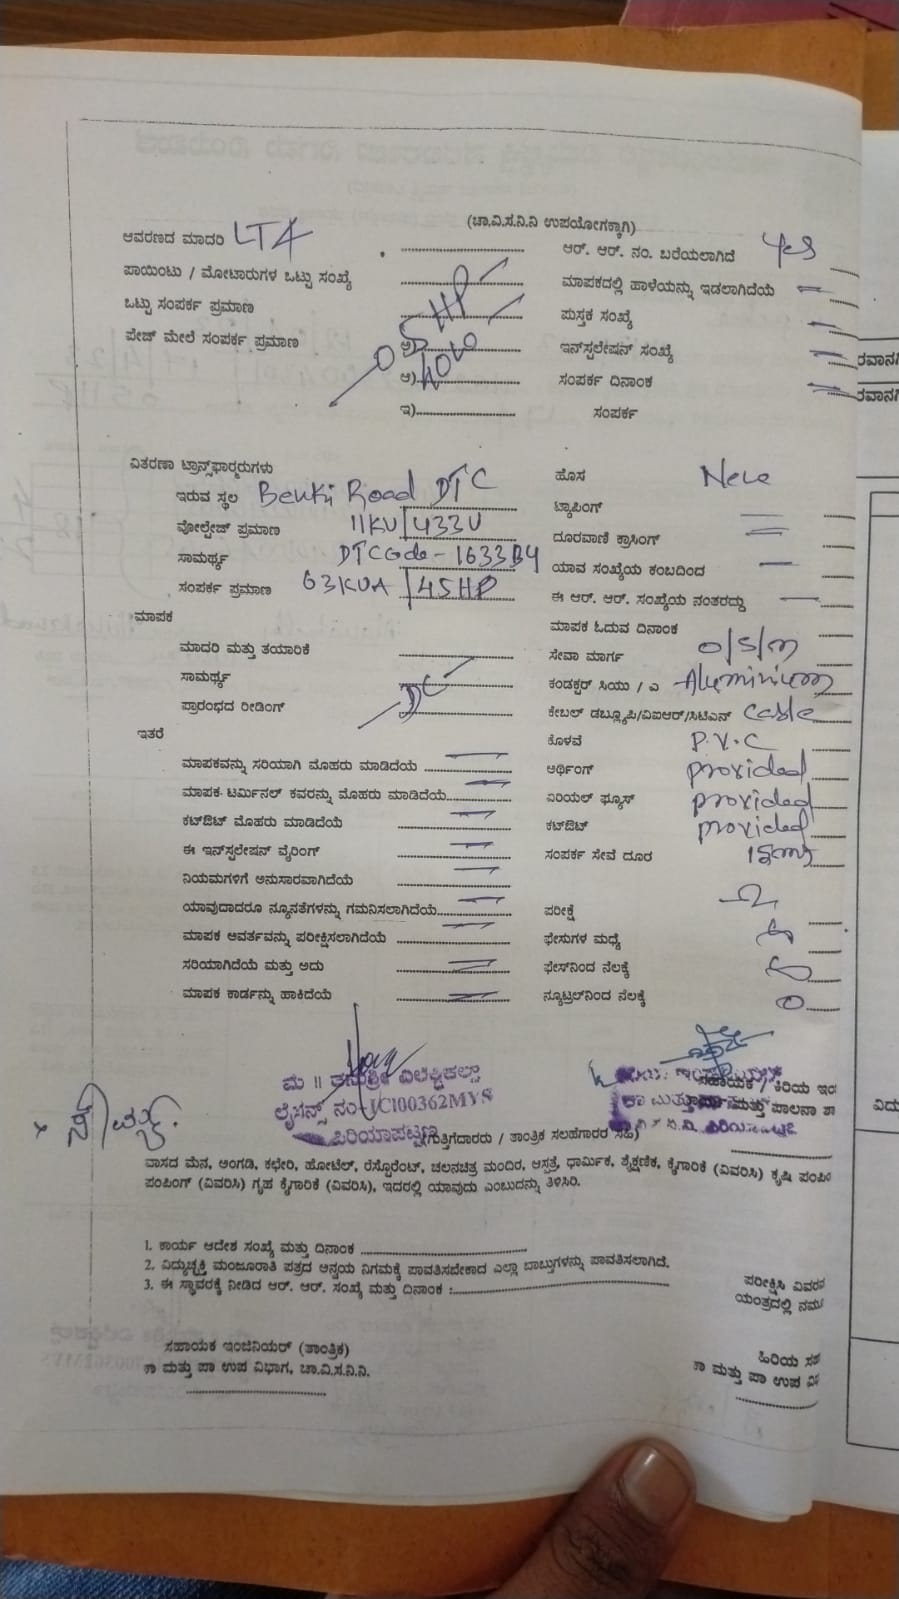 (ಚಾ.ವಿ.ಸ.ನಿ.ನಿ ಉಪಯೋಗಕ್ಕಾಗಿ)
ಆವರಣದ ಮಾದರಿ LT4
ಆರ್. ಆರ್. ನಂ. ಬರೆಯಲಾಗಿದೆ Yes
ಪಾಯಿಂಟು / ಮೋಟಾರುಗಳ ಒಟ್ಟು ಸಂಖ್ಯೆ
ಮಾಪಕದಲ್ಲಿ ಹಾಳೆಯನ್ನು ಇಡಲಾಗಿದೆಯೆ
ಒಟ್ಟು ಸಂಪರ್ಕ ಪ್ರಮಾಣ 05HP
ಪುಸ್ತಕ ಸಂಖ್ಯೆ
ಪೇಜ್ ಮೇಲೆ ಸಂಪರ್ಕ ಪ್ರಮಾಣ ಅ)
ಇನ್‌ಸ್ಟಲೇಷನ್ ಸಂಖ್ಯೆ
ಆ)
ಸಂಪರ್ಕ ದಿನಾಂಕ
ಇ)
ಸಂಪರ್ಕ
ವಿತರಣಾ ಟ್ರಾನ್ಸ್‌ಫಾರ್ಮರುಗಳು
ಹೊಸ New
ಇರುವ ಸ್ಥಲ Benki Road DTC
ಟ್ಯಾಪಿಂಗ್
ವೋಲ್ಟೇಜ್ ಪ್ರಮಾಣ 11KV/433V
ದೂರವಾಣಿ ಕ್ರಾಸಿಂಗ್
ಸಾಮರ್ಥ್ಯ DTCCode-1633B4
ಯಾವ ಸಂಖ್ಯೆಯ ಕಂಬದಿಂದ
ಸಂಪರ್ಕ ಪ್ರಮಾಣ 63KVA/45HP
ಈ ಆರ್. ಆರ್. ಸಂಖ್ಯೆಯ ನಂತರದ್ದು
ಮಾಪಕ
ಮಾಪಕ ಓದುವ ದಿನಾಂಕ
ಮಾದರಿ ಮತ್ತು ತಯಾರಿಕೆ
ಸೇವಾ ಮಾರ್ಗ o/s/m
ಸಾಮರ್ಥ್ಯ DC
ಕಂಡಕ್ಟರ್ ಸಿಯು / ಎ Aluminium
ಪ್ರಾರಂಭದ ರೀಡಿಂಗ್
ಕೇಬಲ್ ಡಬ್ಲ್ಯೂಪಿ/ವಿಐಆರ್/ಸಿಟಿಎಸ್ Cable
ಇತರೆ
ಕೊಳವೆ P.V.C
ಮಾಪಕವನ್ನು ಸರಿಯಾಗಿ ಮೊಹರು ಮಾಡಿದೆಯೆ
ಅರ್ಥಿಂಗ್ provided
ಮಾಪಕ ಟರ್ಮಿನಲ್ ಕವರನ್ನು ಮೊಹರು ಮಾಡಿದೆಯೆ
ಏರಿಯಲ್ ಫ್ಯೂಸ್ provided
ಕಟ್‌ಔಟ್ ಮೊಹರು ಮಾಡಿದೆಯೆ
ಕಟ್‌ಔಟ್ provided
ಈ ಇನ್‌ಸ್ಟಲೇಷನ್ ವೈರಿಂಗ್
ಸಂಪರ್ಕ ಸೇವೆ ದೂರ
ನಿಯಮಗಳಿಗೆ ಅನುಸಾರವಾಗಿದೆಯೆ
ಯಾವುದಾದರೂ ನ್ಯೂನತೆಗಳನ್ನು ಗಮನಿಸಲಾಗಿದೆಯೆ
ಪರೀಕ್ಷೆ
ಮಾಪಕ ಆವರ್ತವನ್ನು ಪರೀಕ್ಷಿಸಲಾಗಿದೆಯೆ
ಫೇಸುಗಳ ಮಧ್ಯೆ
ಸರಿಯಾಗಿದೆಯೆ ಮತ್ತು ಅದು
ಫೇಸ್‌ನಿಂದ ನೆಲಕ್ಕೆ
ಮಾಪಕ ಕಾರ್ಡನ್ನು ಹಾಕಿದೆಯೆ
ನ್ಯೂಟ್ರಲ್‌ನಿಂದ ನೆಲಕ್ಕೆ 0
ಮೆ ॥ ತನುಶ್ರೀ ಎಲೆಕ್ಟ್ರಿಕಲ್ಸ್
ಸಹಾಯಕ / ಕಿರಿಯ ಇಂ
ಲೈಸನ್ಸ್ ನಂ-JC100362MYS
ಮತ್ತು ಪಾಲನಾ ಶಾ
ಪಿರಿಯಾಪಟ್ಟಣ
(ಗುತ್ತಿಗೆದಾರರು / ತಾಂತ್ರಿಕ ಸಲಹೆಗಾರರ ಸಹಿ)
ವಾಸದ ಮೆನ, ಅಂಗಡಿ, ಕಛೇರಿ, ಹೋಟೆಲ್, ರೆಸ್ಟೋರೆಂಟ್, ಚಲನಚಿತ್ರ ಮಂದಿರ, ಆಸ್ಪತ್ರೆ, ಧಾರ್ಮಿಕ, ಶೈಕ್ಷಣಿಕ, ಕೈಗಾರಿಕೆ (ವಿವರಿಸಿ) ಕೃಷಿ ಪಂಪಿಂ
ಪಂಪಿಂಗ್ (ವಿವರಿಸಿ) ಗೃಹ ಕೈಗಾರಿಕೆ (ವಿವರಿಸಿ), ಇದರಲ್ಲಿ ಯಾವುದು ಎಂಬುದನ್ನು ತಿಳಿಸಿರಿ.
1. ಕಾರ್ಯ ಆದೇಶ ಸಂಖ್ಯೆ ಮತ್ತು ದಿನಾಂಕ
2. ವಿದ್ಯುಚ್ಛಕ್ತಿ ಮಂಜೂರಾತಿ ಪತ್ರದ ಅನ್ವಯ ನಿಗಮಕ್ಕೆ ಪಾವತಿಸಬೇಕಾದ ಎಲ್ಲಾ ಬಾಬ್ತುಗಳನ್ನು ಪಾವತಿಸಲಾಗಿದೆ.
3. ಈ ಸ್ಥಾವರಕ್ಕೆ ನೀಡಿದ ಆರ್. ಆರ್. ಸಂಖ್ಯೆ ಮತ್ತು ದಿನಾಂಕ :
ಪರೀಕ್ಷಿಸಿ ವಿವರ
ಯಂತ್ರದಲ್ಲಿ ನಮೂ
ಸಹಾಯಕ ಇಂಜಿನಿಯರ್ (ತಾಂತ್ರಿಕ)
ಹಿರಿಯ ಸಹ
ಕಾ ಮತ್ತು ಪಾ ಉಪ ವಿಭಾಗ, ಚಾ.ವಿ.ಸ.ನಿ.ನಿ.
ಕಾ ಮತ್ತು ಪಾ ಉಪ ವಿ